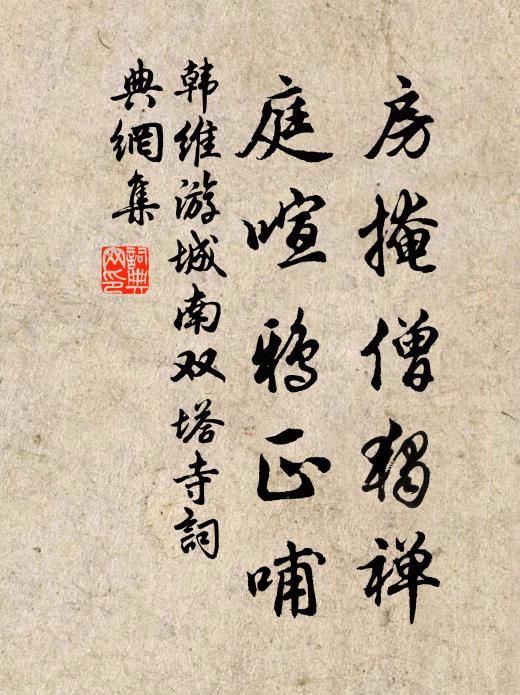 房掩僧独禅
庭喧鸦正哺
韩维游城南双塔寺词
典網集
詞典